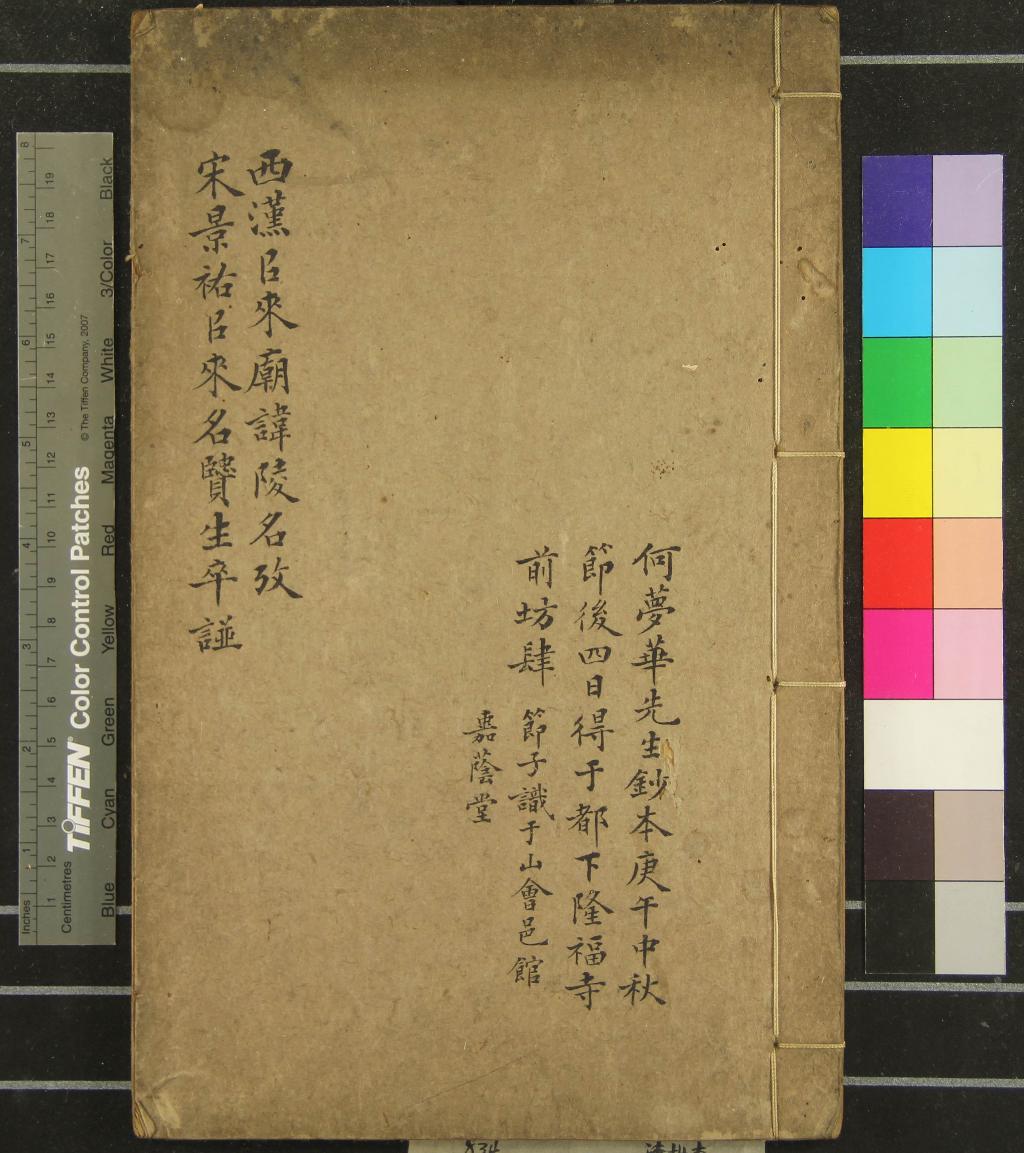 何夢華先生鈔本庚午中秋
節後四日得于都下隆福寺
前坊肆 節子識于山會邑館
嘉蔭堂
西漢㠯來廟諱陵名攷
宋景祐㠯來名賢生卒諩
Inches 1 2 3 4 5 6 7 8
Centimetres 1 2 3 4 5 6 7 8 9 10 11 12 13 14 15 16 17 18 19
TIFFEN® Color Control Patches © The Tiffen Company, 2007
Blue Cyan Green Yellow Red Magenta White 3/Color Black